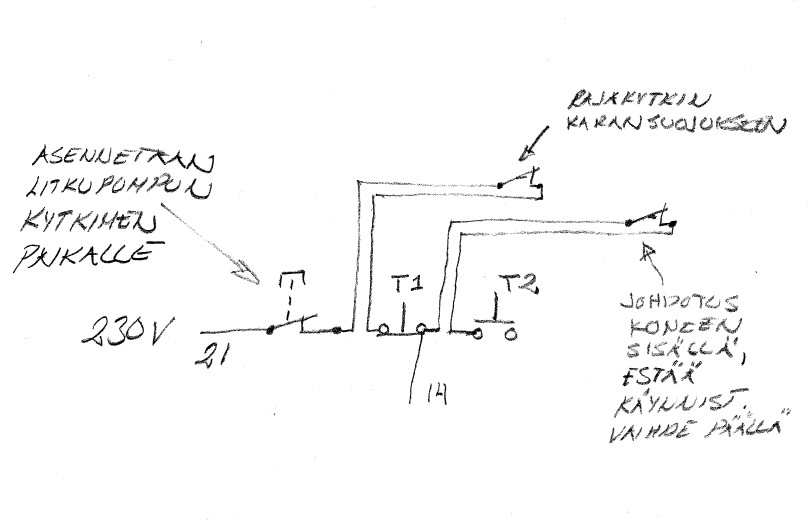 RAJAKYTKIN
KARANSUOJUKSEEN
ASENNETAAN
LITKUPUMPUN
KYTKIMEN
PAIKALLE
T1
T2
230V
21
14
JOHDOTUS
KONEEN
SISÄLLÄ,
ESTÄÄ
KÄYNNIST.
VAIHDE PÄÄLLÄ